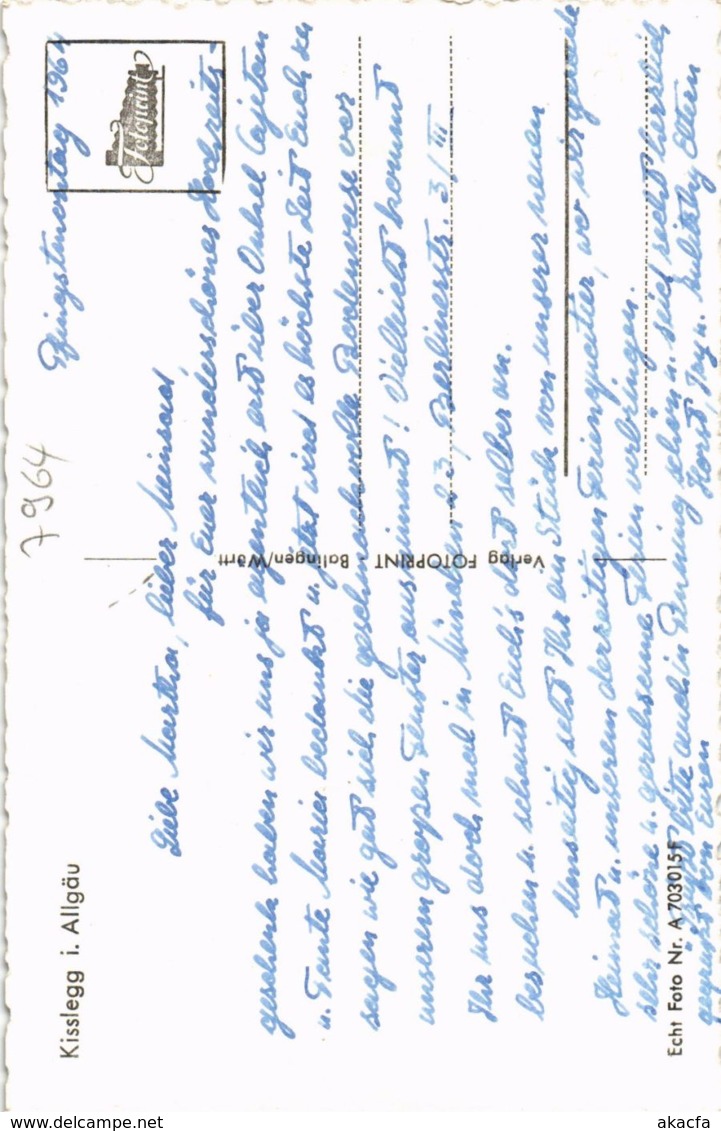 Kisslegg i. Allgäu
7964
Fotoprint
Pfingstmontag 1964
Liebe Martha, lieber Meinrad,
für Euer wunderschönes Hochzeits-
geschenk haben wir uns ja eigentlich erst über Onkel Cajetan
u. Tante Marie bedankt u. jetzt wird es höchste Zeit Euch zu
sagen wie gut sich die geschmackvolle Bodenvase vor
unserem großen Fenster ausnimmt! Vielleicht kommt
Ihr uns doch mal in München 23, Berlinerstr. 3/III
besuchen u. schaut Euch's dort selber an.
Umseitig seht Ihr ein Stück von unserer neuen
Heimat u. unserem derzeitigen Ferienquartier, wo wir gerade
sehr schöne u. geruhsame Ferien verbringen.
bitte auch in schön u. seid selbst herzlich
gegrüßt von Euren Horst, u. Eltern
Verlag FOTOPRINT - Balingen/Württ
Echt Foto Nr. A 7030154
akacfa